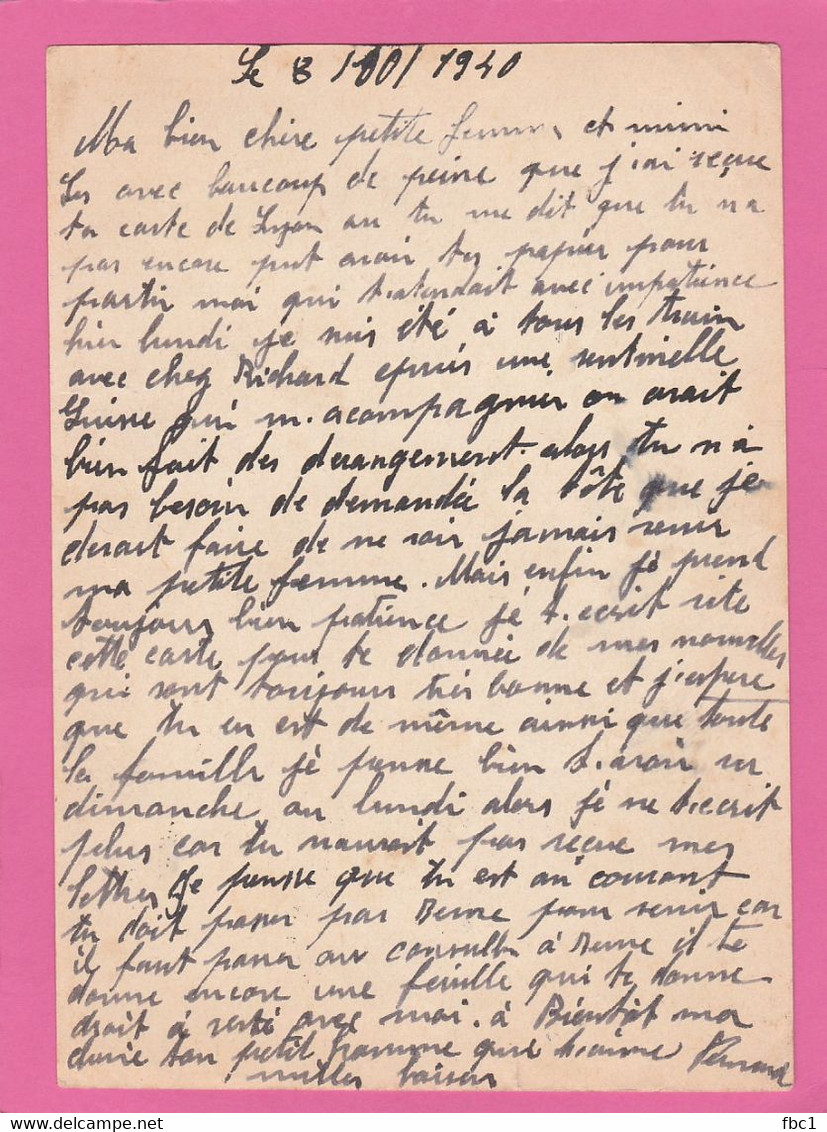 Le 8/10/1940
Ma bien chère petite femme et mimi
Ses avec baucoup de peine que j'ai reçue
ta carte de Lyon au tu me dit que tu n a
pas encore put avoir tes papier pour
partir moi qui t.atendait avec impatience
hier lundi je suis été à tous les train
avec chez Richard epuis une sentinelle
Suisse qui m.acompagnier on avait
bien fait des derangement. alors tu n a
pas besoin de demandée la tête que je
devait faire de ne voir jamais venir
ma petite femme. Mais enfin jè prend
toujours bien patience jé t.ecrit vite
cette carte pour te donnée de mes nouvelles
qui sont toujours très bonne et j'espere
que tu en est de même ainsi que toute
la famille jè pense bien t.avoir
dimanche ou lundi alors jè ne t.ecrit
plus car tu naurait pas reçue mes
lettres Je pense que tu est au courant
tu doit passer par Berne pour venir car
il faut passer au consulla à Berne il te
donne encore une feuille qui te donne
droit à resté avec moi. à Bientôt ma
cherie ton petit homme que t.aime Fernand
milles baisers
fbc1